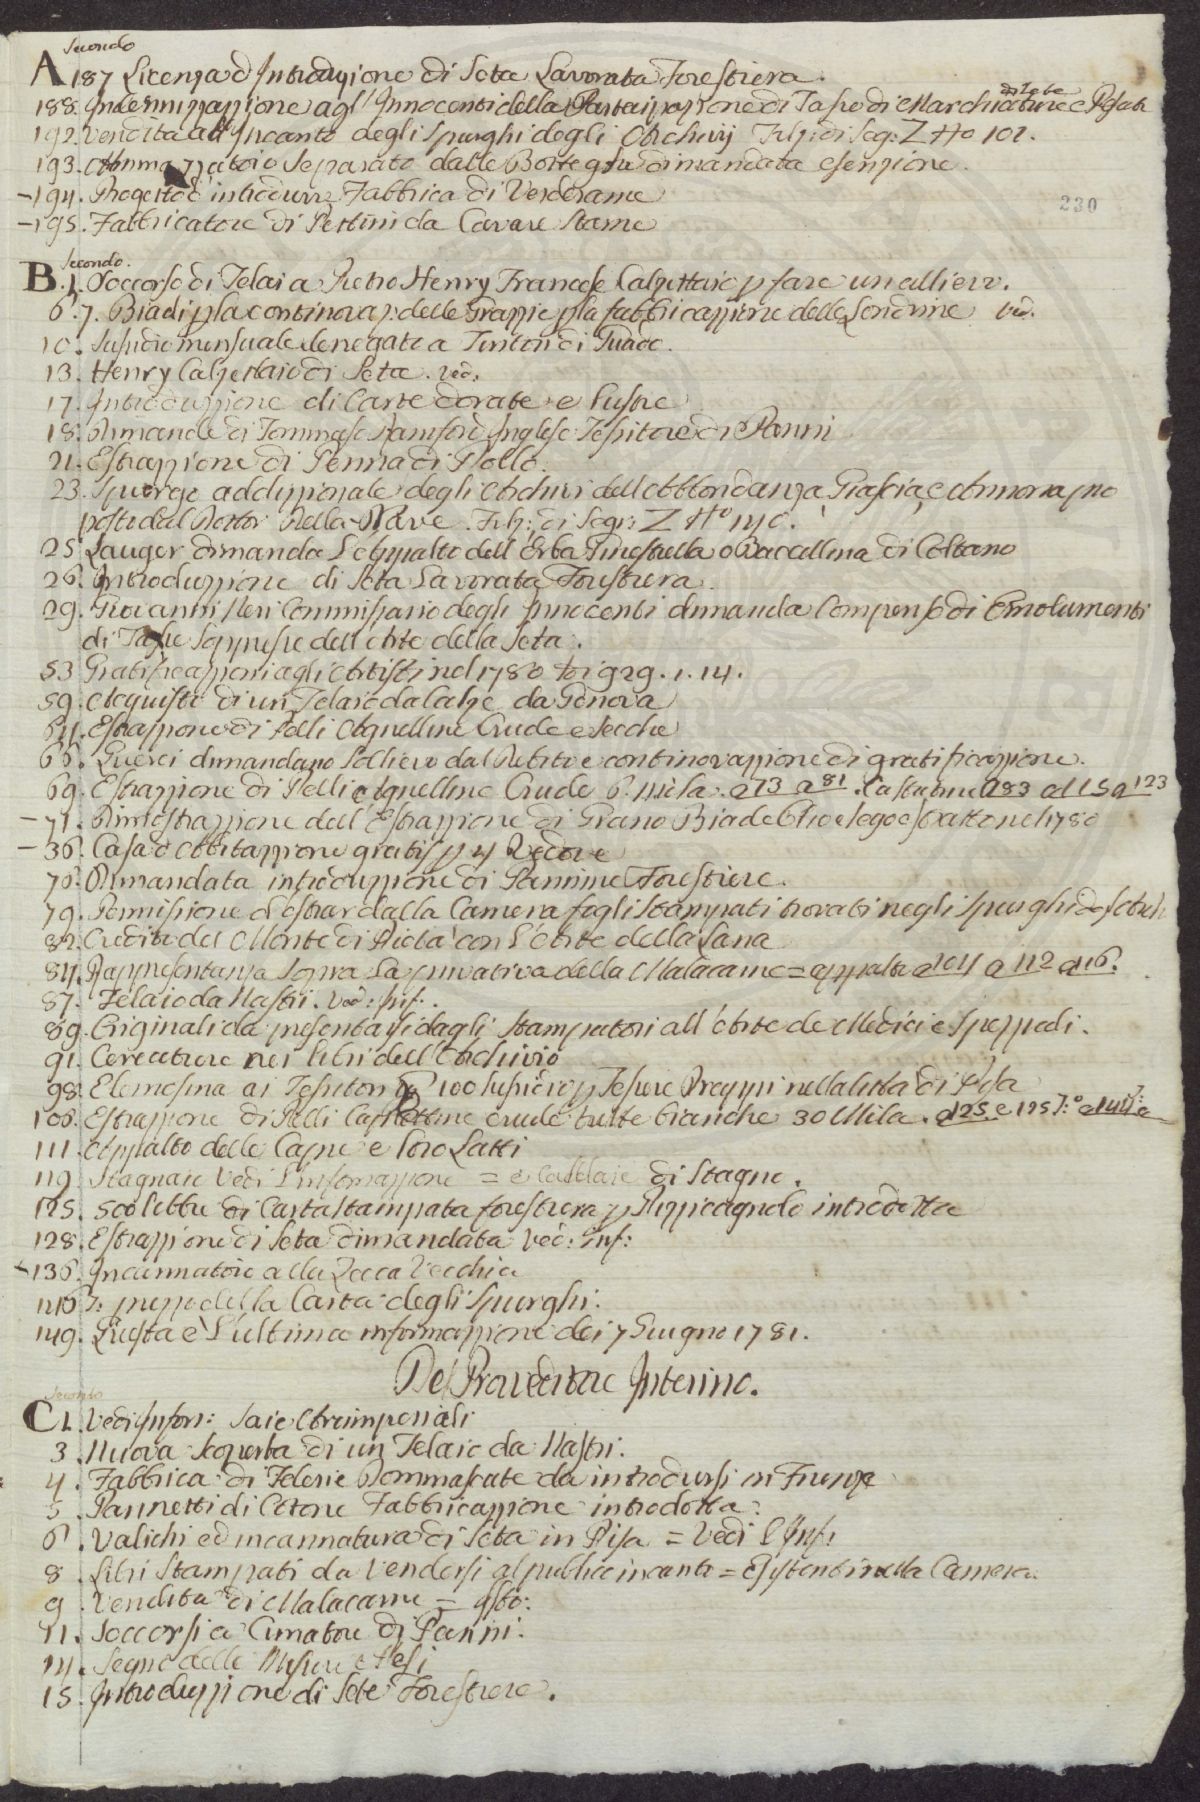 Secondo
A 187 Licenza d'Introduzione di Seta Lavorata Forestiera.
di Tele
188. Indennizzazione agl'Innocenti della Partecipazione di Tasse di Marchiature e Pesate
192. Vendita all'Incanto degli Spurghi degli Archivj Filz: di Seg: Z Nº 101.
193. Ammazzatoio Separato dalle Botteghe dimandata esenzione.
– 194. Progetto d'introdurre Fabbrica di Verderame
230
– 195. Fabbricatore di Pettini da Cavare Stame
Secondo.
B. 1. Soccorso di Telai a Pietro Henry Francese Calzettaio p fare un allievo.
6. 7. Biadi p la continovaz: delle Grazzie p la fabbricazzione delle Londrine ved.
10. Susidio mensuale denegato a Tintori di Guado.
13. Henry Calzettaio di Seta. ved.
17. Introduzzione di Carte dorate e lustre
18. Dimande di Tommaso Inglese Tessitore di Panni
21. Estrazzione di Penna di Pollo.
23. Spurgo addizzionale degli Archivi dell'Abbondanza, Grascia, e Annona, pro
posto dal Dottor Della Nave. Filz: di Segr: Z Nº 140.
25. Lauger dimanda l'Appalto dell'Erba Ginestrella o Baccellina di Coltano
26. Introduzzione di Seta Lavorata Forestiera
29. Giovanni Neri Commissario degli Innocenti dimanda Compenso di Emolumenti
di Tasse Soppresse dell'Arte della Seta.
53. Gratificazzioni agli Artisti nel 1780 929. 1. 14.
59. Acquisto di un Telaio da Calze da Genova
64. Estrazzione di Pelli Agnelline Crude e secche
66. Querci dimandano Sollievo dal Debito e continovazzione di gratificazzione.
69. Estrazzione di Pelli Agnelline Crude 6. Mila. a 73 a 81. Castratine a 83 a 115 a 123
– 71. Dimostrazzione dell'Estrazzione di Grano Biade Olio e sego estratto nel 1780
– 36. Casa d'Abitazzione gratis p 4 Vedove
76. Dimandata introduzzione di Pannine Forestiere.
79. Permissione d'estrar dalla Camera fogli stampati trovati negli spurghi
82. Credito del Monte di Pietà con l'Arte della Lana
84. Rappresentanza sopra la privativa della Malacarne = appalto a 104 a 112 a 116.
87. Telaio da Nastri. ved: Inf:.
89. Originali da presentarsi dagli Stampatori all'Arte de Medici e Speziali.
91. Cercature nei libri dell'Archivio
98. Elemosina ai Tessitori 100 susidio p Tesser Drappi nella Città di Pisa
100. Estrazzione di Pelli Caprettine crude tutte bianche 30 Mila. a 125. e
111. Appalto delle Capre e loro Latti
119. Stagnaie Vedi l'informazzione = e Caldaie di Stagno.
125. 500 libbre di Carta Stampata forestiera p Pizzicagnolo introdotta
128. Estrazzione di Seta dimandata ved: Inf:
– 136. Incannatoio alla Zecca Vecchia
146. prezzo della Carta degli Spurghi.
149. Questa è l'ultima informazzione dei 7 Giugno 1781.
Del Proveditore Interino.
Secondo
C 1. Vedi Infor: Saie Atrimperiali
3. Nuova scoperta di un Telaio da Nastri.
4. Fabbrica di Telerie Dommascate da introdursi in Firenze
5. Pannetti di Cotone Fabbricazzione introdotta.
6. Valichi ed incannatura di Seta in Pisa = Vedi l'Inf:
8. Libri Stampati da Vendersi al publico incanto = Esistenti nella Camera.
9. Vendita di Malacarne =
11. Soccorsi a Cimatori di Panni.
14. Segno delle Misure e Pesi
15. Introduzzione di Sete Forestiere.